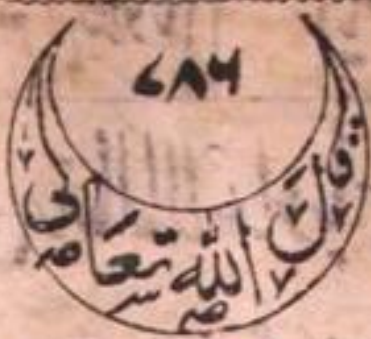 ۷۸۶
قَالَ اللّٰہُ تَعَالٰی